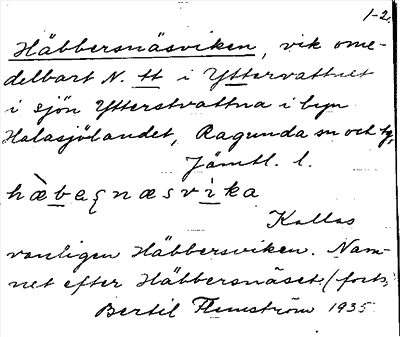 1-2.
Häbbersnäsviken, vik ome-
delbart N. tt i Yttervattnet
i sjön Ytterstvattna i byn
Halasjölandet, Ragunda sn och tg,
Jämtl. l.
hæbeṣnæsvika
Kallas
vanligen Häbbersviken. Nam-
net efter Häbbersnäset. (forts.
Bertil Flemström 1935